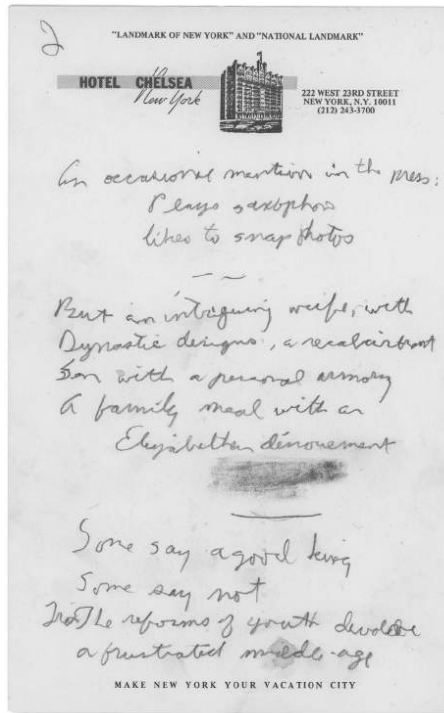 2
"LANDMARK OF NEW YORK" AND "NATIONAL LANDMARK"
HOTEL CHELSEA
New York
222 WEST 23RD STREET
NEW YORK, N.Y. 10011
(212) 243-3700
An occasional mention in the press:
Plays saxophone
likes to snap photos
But an intriguing wife, with
Dynastic designs, a recalcitrant
Son with a personal armory
A family meal with an
Elizabethan dénouement
Some say a good king
Some say not
The reforms of youth
a frustrated middle-age
MAKE NEW YORK YOUR VACATION CITY